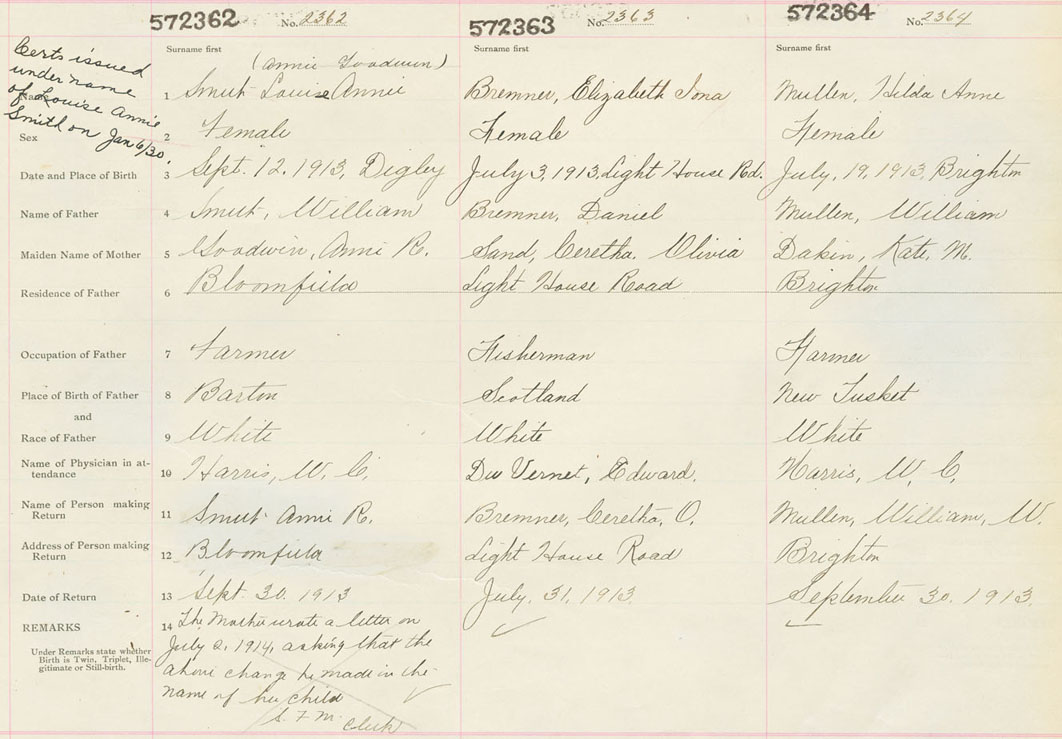 572362 No. 2362
572363 No. 2363
572364 No. 2364
Certs issued
under name
of Louise Annie
Smith on Jan 6/30.
Surname first
Surname first
Surname first
(Annie Goodwin)
Name 1 Smith Louise Annie
Bremner, Elizabeth Iona
Mullen, Hilda Anne
Sex 2 Female
Female
Female
Date and Place of Birth 3 Sept. 12. 1913, Digby
July 3, 1913, Light House Rd.
July, 19, 1913, Brighton
Name of Father 4 Smith, William
Bremner, Daniel
Mullen, William
Maiden Name of Mother 5 Goodwin, Annie R.
Sand, Ceretha. Olivia
Dakin, Kate, M.
Residence of Father 6 Bloomfield
Light House Road
Brighton
Occupation of Father 7 Farmer
Fisherman
Farmer
Place of Birth of Father 8 Barton
Scotland
New Tusket
and
Race of Father 9 White
White
White
Name of Physician in at-
tendance 10 Harris, W. C.
Du Vernet, Edward.
Harris, W. C.
Name of Person making
Return 11 Smith Annie R.
Bremner, Ceretha, O.
Mullen, William, W.
Address of Person making
Return 12 Bloomfield
Light House Road
Brighton
Date of Return 13 Sept. 30. 1913
July. 31. 1913.
September 30. 1913.
REMARKS 14 The Mother wrote a letter on
July 2, 1914, asking that the
above change be made in the
name of her child
S. F. M. Clerk
Under Remarks state whether
Birth is Twin, Triplet, Ille-
gitimate or Still-birth.